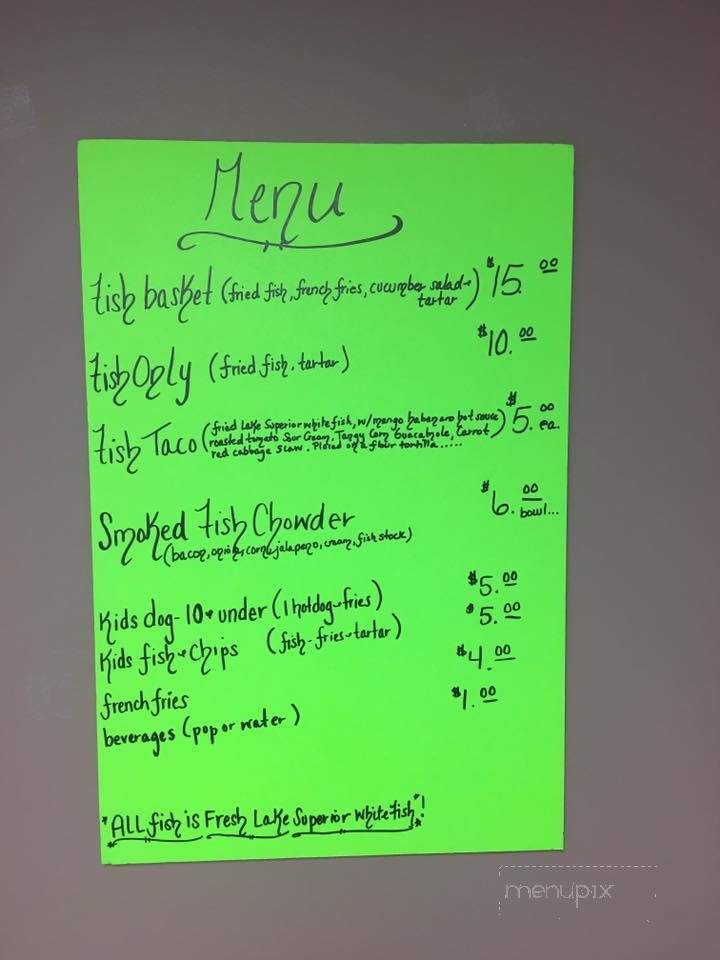 Menu
Fish basket (fried fish, french fries, cucumber salad + tartar) $15.00
Fish Only (fried fish, tartar) $10.00
Fish Taco (fried Lake Superior white fish, w/ mango habanaro hot sauce $5.00 ea.
roasted tomato Sour Cream, Tangy Corn Guacamole, Carrot)
red cabbage Slaw. Placed on a flour tortilla.....
Smoked Fish Chowder $6.00 bowl...
(bacon, onion, corn, jalapeno, cream, fish stock)
Kids dog-10+ under (1 hotdog-fries) $5.00
Kids fish+Chips (fish-fries-tartar) $5.00
french fries $4.00
beverages (pop or water) $1.00
*ALL fish is Fresh Lake Superior White Fish*!
menupix